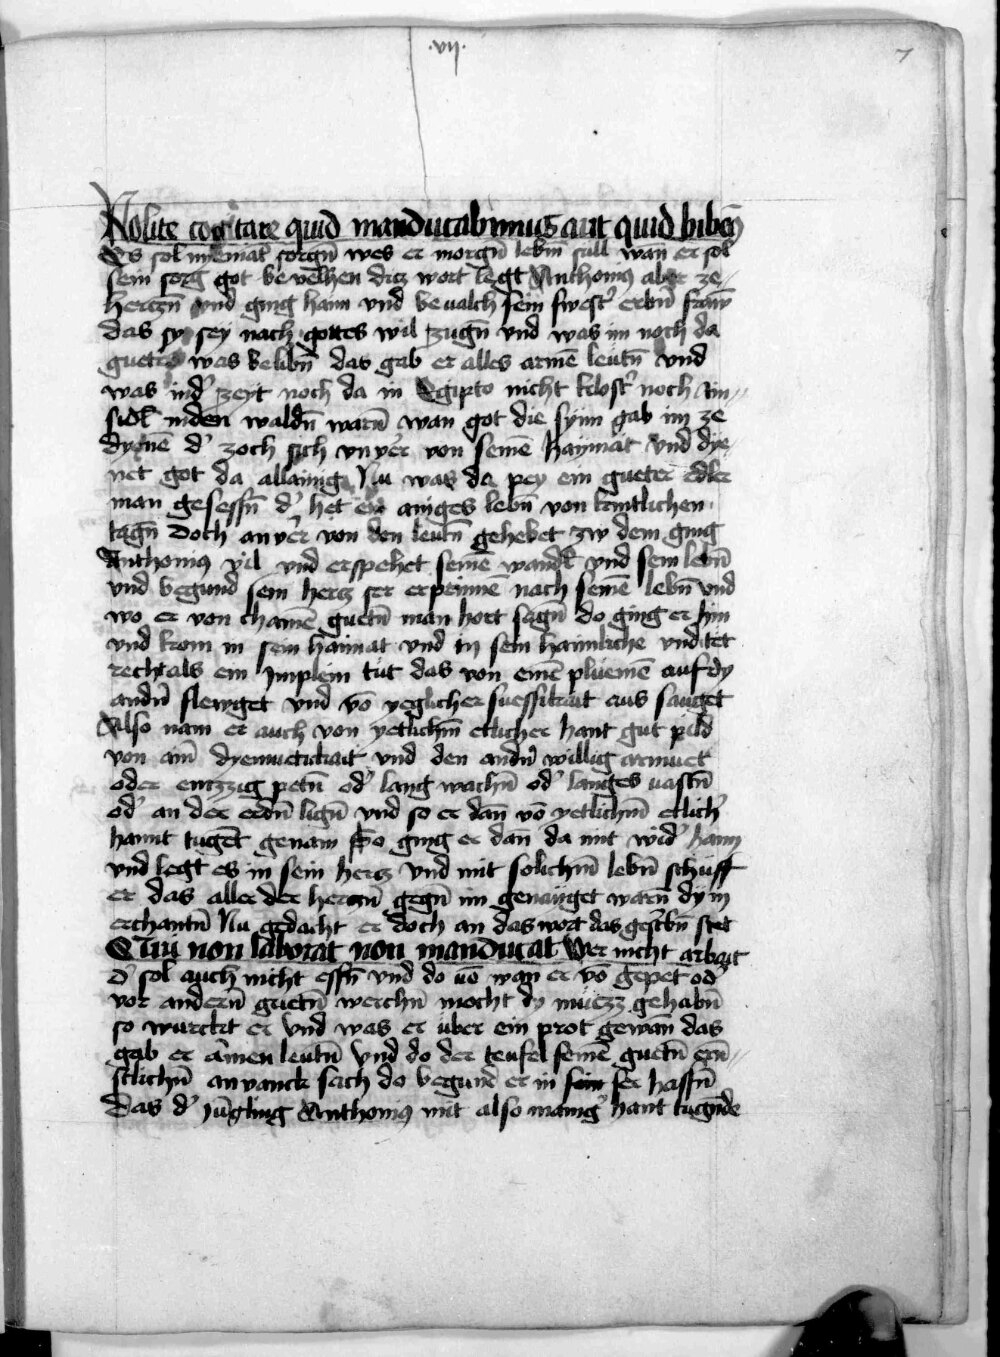 ·vij·
7
Nolite cogitare quid manducabimus aut quid bibem9
Es sol niemat sorgn̄ wes er morgn̄ lebm̄ sull wan̄ er sol
sein sorg got bevelhen ditz wort legt Anthonius aber ze
hertzn̄ vnd ging haim vnd bevalch sein swest' erbn̄ frawn̄
das sy sey nach gottes wil zugn̄ vnd was im noch da
guetes was belibn̄ das gab er alles armē leutn̄ vnd
was in d' zeyt noch da in Egipto nicht klost' noch Ain=
sidl̄ in den waldn̄ warn̄ wan got die synn gab im ze
dyenē d' zoch sich vnv'r von seinē haymat vnd dye
net got da allainig Nu was da pey ein gueter edler
man gesessn̄ d' het ein ainiges lebn̄ von kintlichen
tagn̄ doch anv'r von den leutn̄ gehebet zw dem ging
Anthonius vil vnd erspehet seinē wandl̄ vnd sein lebn̄
vnd begund sein hertz ser erprinnē nach seinē lebn̄ vnd
wo er von chainē guetn̄ man hort sagn̄ do ging er hin
vnd kom in sein haimat vnd in sein haimliche vnd tet
recht als ein Jmplein tut das von einē pluemē auf dy
andn̄ flewget vnd vō yeglicher suessikait aus sauget
Also nam er auch von yetlichm̄ etlicher hant gut pild
von aim̄ dyemuetikait vnd den andn̄ willig armuet
oder emtzzig petn̄ od' lang wachn̄ od' langes vastn̄
od' an der erdn̄ lign̄ vnd so er dan̄ vō yetlichm̄ etlich'
hannt tugēt genam So ging er dan̄ da mit wid' haim
vnd legt es in sein hertz vnd mit solichm̄ lebn̄ schuff
er das aller der hertzn̄ gegn̄ im genaiget warn̄ dy in
erchantn̄ Nu gedacht er doch an das wort das geschribn̄ stet
Qui non laborat non manducat Wer nicht arbait
d' sol auch nicht essn̄ vnd do vō wan er vō gepet od'
vor andern̄ guetn̄ werchn̄ mocht dy muezz gehabn̄
so wurckt er vnd was er uber ein prot gewan̄ das
gab er armen leutn̄ vnd do der teufel seinē guetn̄ ern=
stlichn̄ anvanck sach do begund er in sein ser hassn̄
das d' Jungling Anthonius mit also manig' hant tugn̄de